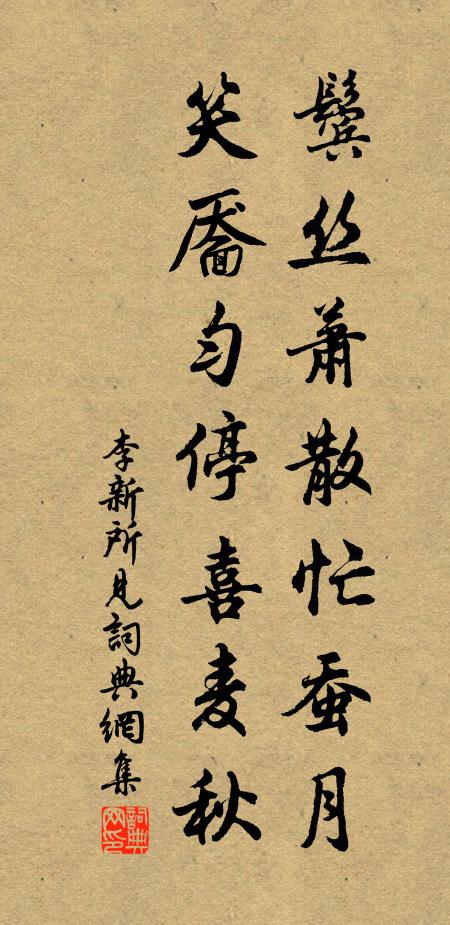 鬓丝萧散忙蚕月
笑靥匀停喜麦秋
李新所見詞典網集
詞典网印